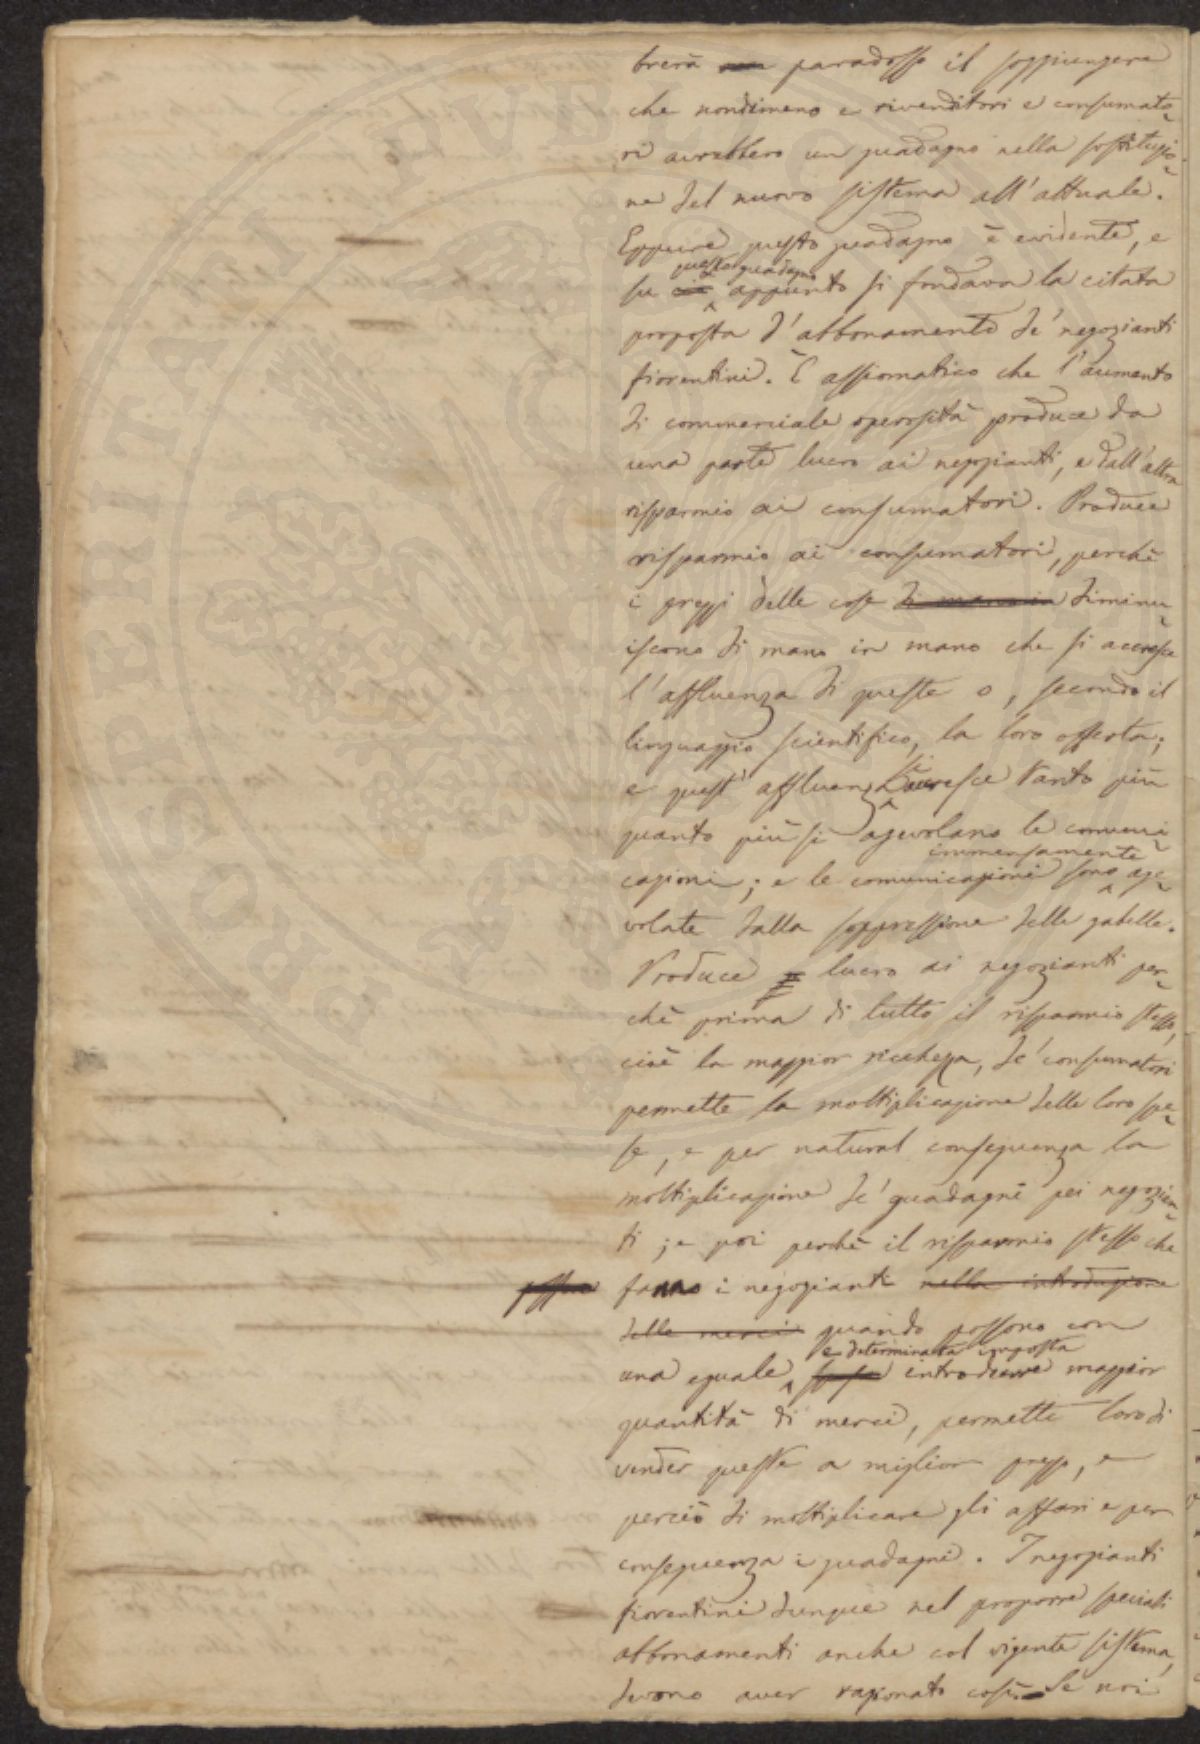 brerà paradosso il soggiungere
che nondimeno e rivenditori e consumato-
ri avrebbero un guadagno nella sostituzio-
ne del nuovo sistema all'attuale.
Eppure questo guadagno è evidente, e
questo guadagno
su ciò appunto si fondava la citata
proposta d'abbonamento de' negozianti
fiorentini. È assiomatico che l'aumento
di commerciale operosità produce da
una parte lucro ai negozianti, e dall'altra
risparmio ai consumatori. Produce
risparmio ai consumatori, perchè
i prezzi delle cose diminu-
iscono di mano in mano che si accresce
l'affluenza di queste o, secondo il
linguaggio scientifico, la loro offerta;
e quest'affluenza si accresce tanto più
quanto più si agevolano le comuni-
immensamente
cazioni; e le comunicazioni sono age-
volate dalla soppressione delle gabelle.
Produce lucro ai negozianti per-
chè prima di tutto il risparmio stesso,
cioè la maggior ricchezza, de' consumatori
permette la moltiplicazione delle loro spe-
se, e per natural conseguenza la
moltiplicazione de' guadagni pei negozian-
ti; e poi perchè il risparmio stesso che
fanno i negozianti nella introduzione
delle merci quando possono con
e determinata imposta
una eguale spesa introdurre maggior
quantità di merci, permette loro di
vender queste a miglior prezzo, e
perciò di moltiplicare gli affari e per
conseguenza i guadagni. I negozianti
fiorentini dunque nel proporre speciali
abbonamenti anche col vigente sistema,
devono aver ragionato così: Se noi